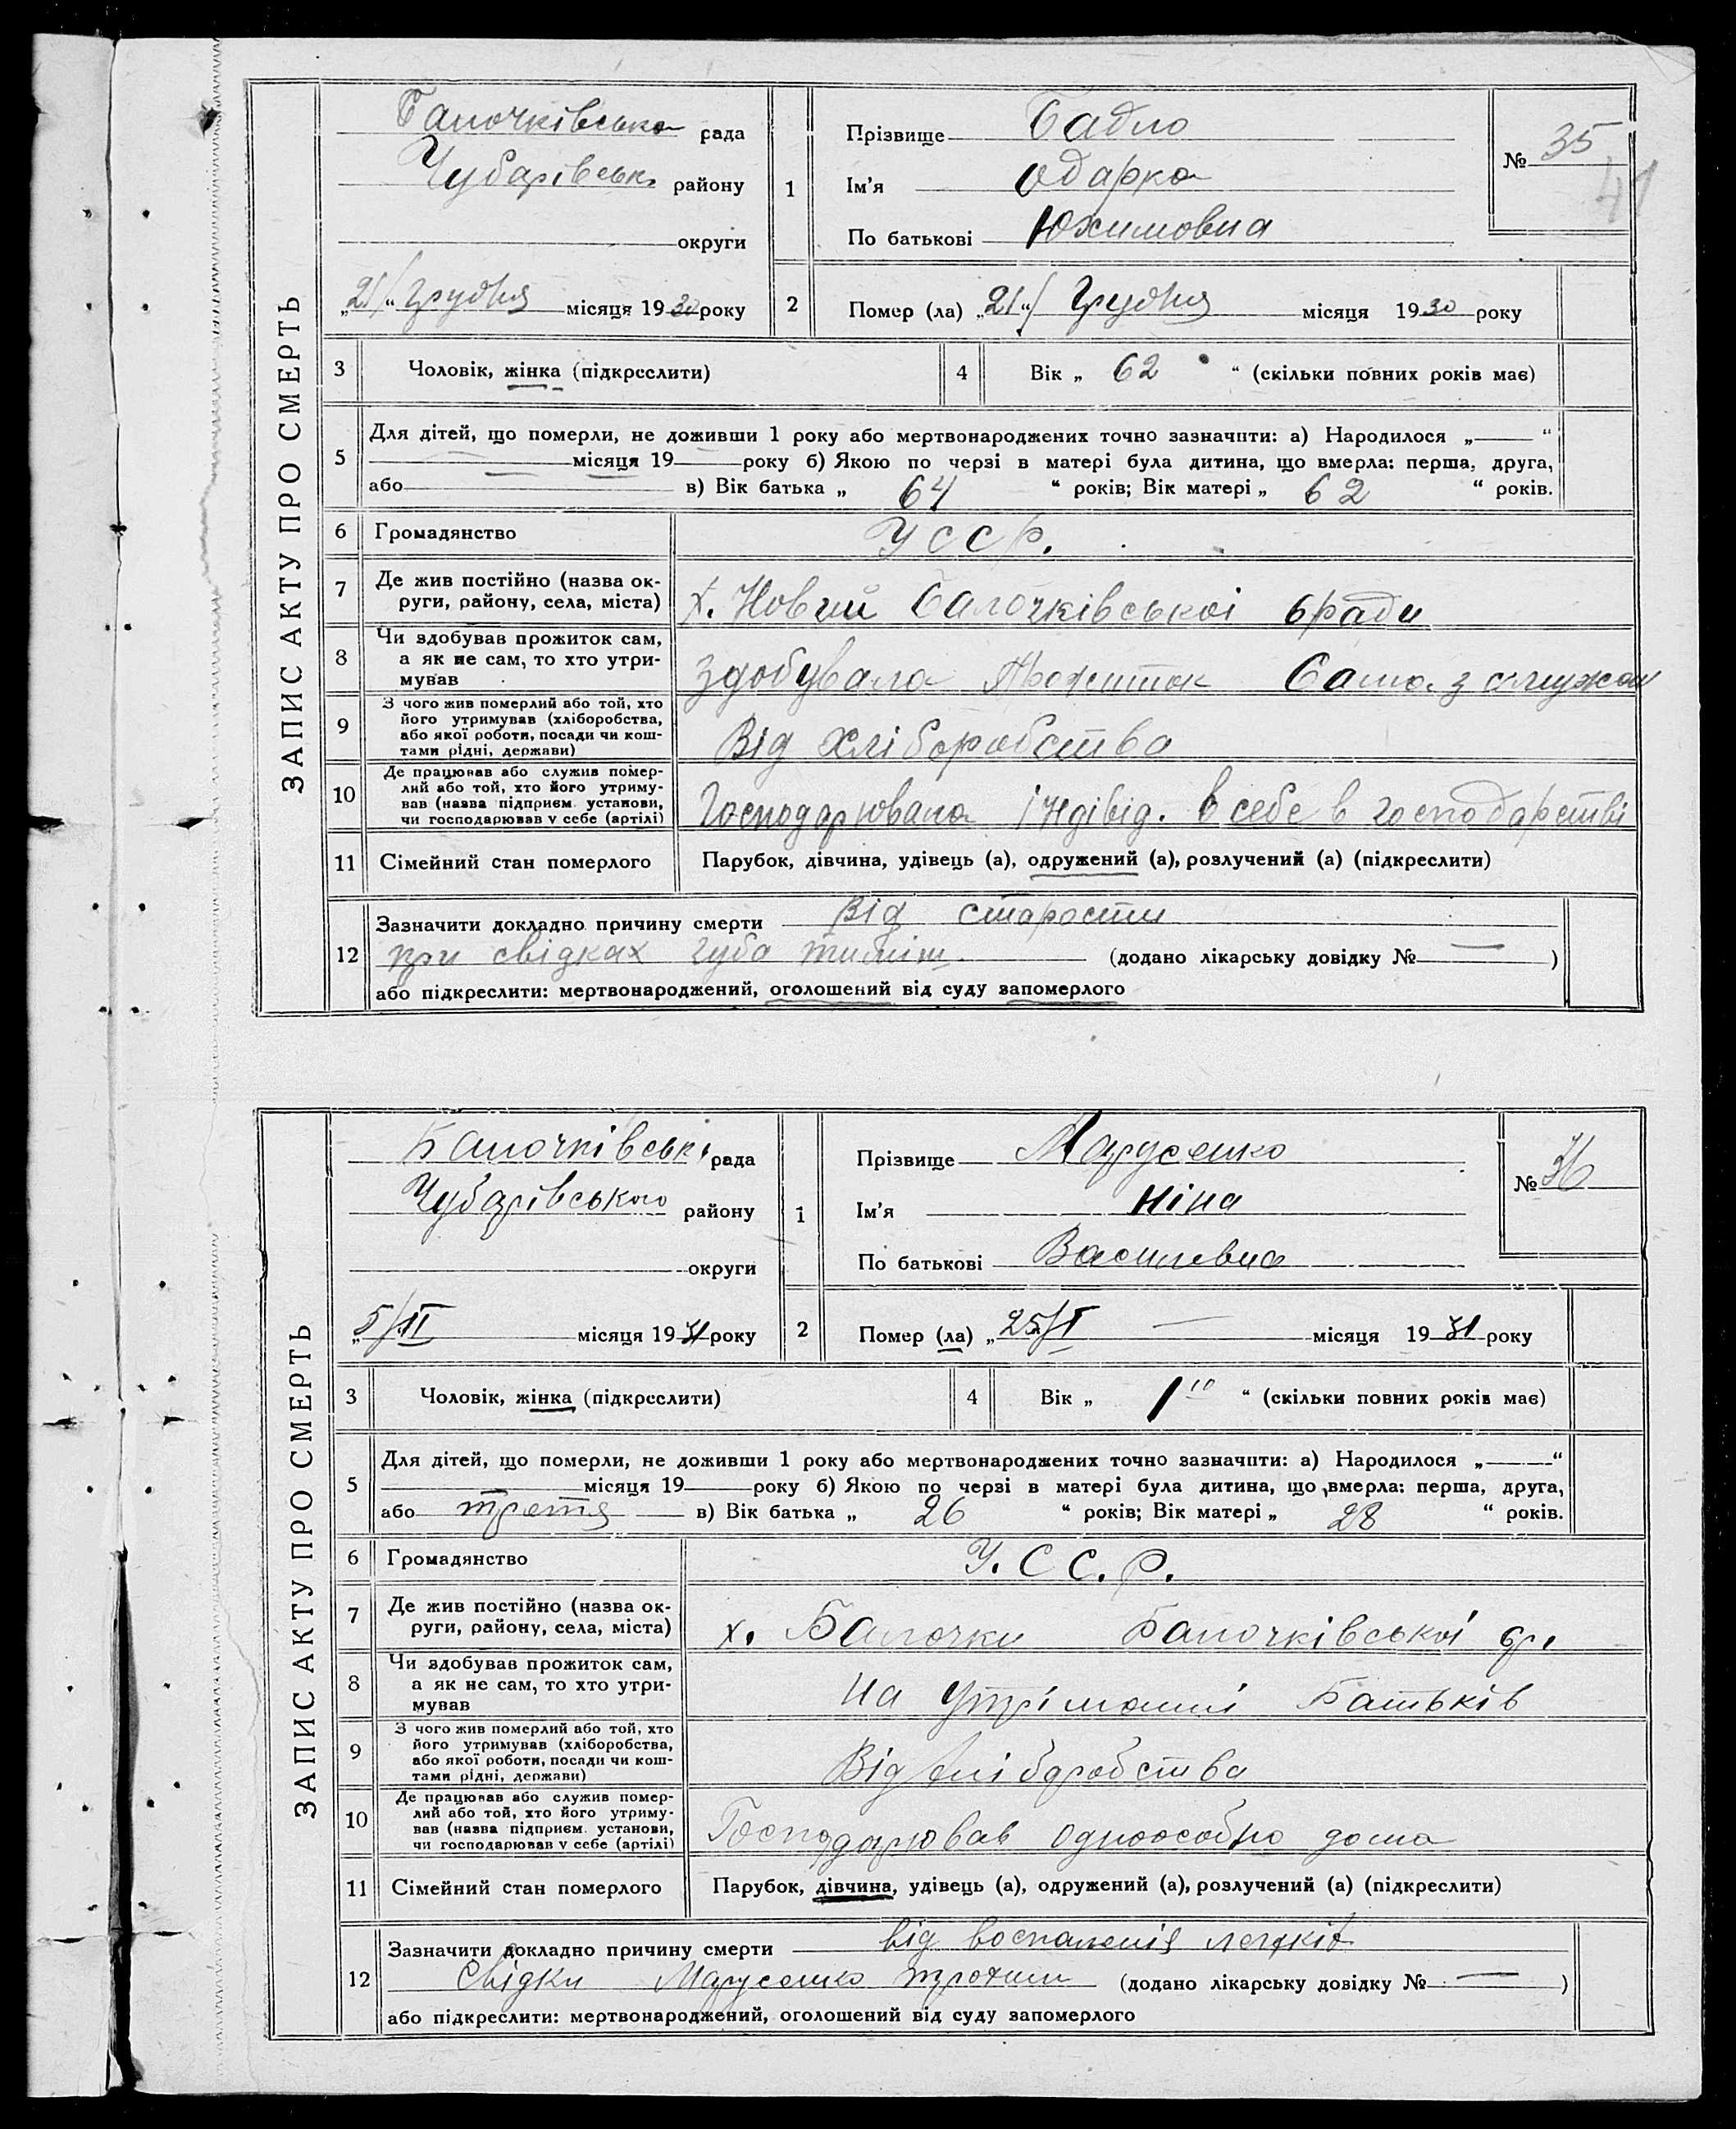 ЗАПИС АКТУ ПРО СМЕРТЬ
Балочківська рада
Чубарівськ. району
округи
„21/“ грудня місяця 1930 року
1
Прізвище
Ім'я Одарка
По батькові Юхимовна
№ 35
41
2 Помер (ла) „21“/ Грудня місяця 1930 року
3 Чоловік, жінка (підкреслити)
4 Вік „ 62 “ (скільки повних років має)
5 Для дітей, що померли, не доживши 1 року або мертвонароджених точно зазначити: а) Народилося „—“
місяця 19 року б) Якою по черзі в матері була дитина, що вмерла: перша, друга,
або в) Вік батька „ 64 “ років; Вік матері „ 62 “ років.
6 Громадянство УССР.
7 Де жив постійно (назва ок-
руги, району, села, міста) х. Новий Балочківської с/ради
8 Чи здобував прожиток сам,
а як не сам, то хто утри-
мував здобувала прожиток Сама з
9 З чого жив померлий або той, хто
його утримував (хліборобства,
або якої роботи, посади чи кош-
тами рідні, держави) Від хліборобства
10 Де працював або служив помер-
лий або той, хто його утриму-
вав (назва підприєм. установи,
чи господарював у себе (артілі) Господарювала індівід. в себе в господарстві
11 Сімейний стан померлого Парубок, дівчина, удівець (а), одружений (а), розлучений (а) (підкреслити)
12 Зазначити докладно причину смерти Від старости
при свідках губа (додано лікарську довідку № — )
або підкреслити: мертвонароджений, оголошений від суду запомерлого
ЗАПИС АКТУ ПРО СМЕРТЬ
Балочківськ. рада
Чубарівського району
округи
„5/II місяця 1931 року
1
Прізвище Марусенко
Ім'я Ніна
По батькові Василевна
№ 36
2 Помер (ла) „25/I — місяця 1931 року
3 Чоловік, жінка (підкреслити)
4 Вік „ 1 “ (скільки повних років має)
5 Для дітей, що померли, не доживши 1 року або мертвонароджених точно зазначити: а) Народилося „—“
місяця 19 року б) Якою по черзі в матері була дитина, що вмерла: перша, друга,
або третя в) Вік батька „ 26 “ років; Вік матері „ 28 “ років.
6 Громадянство У.С С.Р.
7 Де жив постійно (назва ок-
руги, району, села, міста) х. Балочки Балочківської с/р.
8 Чи здобував прожиток сам,
а як не сам, то хто утри-
мував На утріманні Батьків
9 З чого жив померлий або той, хто
його утримував (хліборобства,
або якої роботи, посади чи кош-
тами рідні, держави) Від хліборобства
10 Де працював або служив помер-
лий або той, хто його утриму-
вав (назва підприєм. установи,
чи господарював у себе (артілі) Господарював одноособно дома
11 Сімейний стан померлого Парубок, дівчина, удівець (а), одружений (а), розлучений (а) (підкреслити)
12 Зазначити докладно причину смерти від воспаленія легків
Свідки Марусенко трохим (додано лікарську довідку № — )
або підкреслити: мертвонароджений, оголошений від суду запомерлого